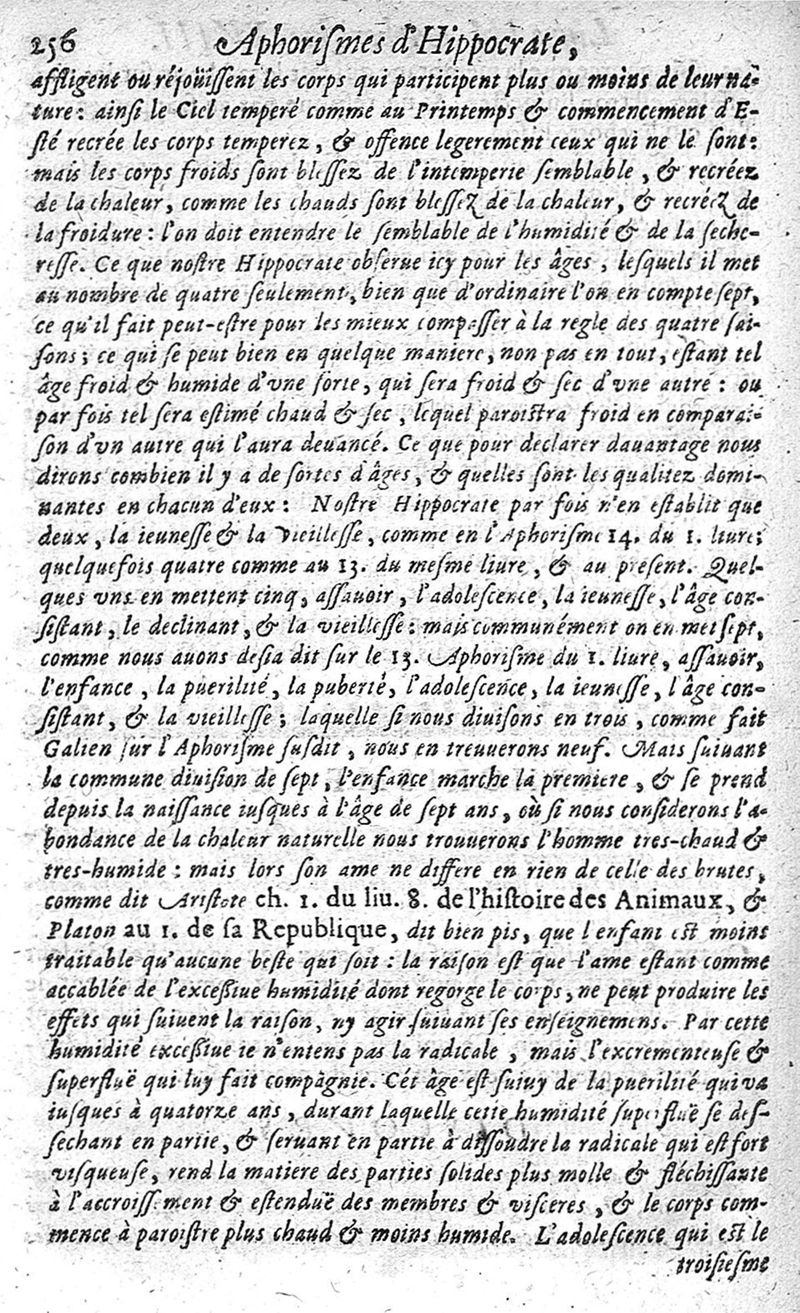 256 Aphoriſmes d'Hippocrate,
affligent ou réjoüiſſent les corps qui participent plus ou moins de leur na-
ture: ainſi le Ciel temperé comme au Printemps & commencement d'E-
ſté recrée les corps temperez, & offence legerement ceux qui ne le ſont:
mais les corps froids ſont bleſſez de l'intemperie ſemblable, & recréez
de la chaleur, comme les chauds ſont bleſſez de la chaleur, & recréez de
la froidure: l'on doit entendre le ſemblable de l'humidité & de la ſeche-
reſſe. Ce que noſtre Hippocrate obſerue icy pour les âges, leſquels il met
au nombre de quatre ſeulement, bien que d'ordinaire l'on en compte ſept,
ce qu'il fait peut-eſtre pour les mieux compaſſer à la regle des quatre ſai-
ſons; ce qui ſe peut bien en quelque maniere, non pas en tout, eſtant tel
âge froid & humide d'vne ſorte, qui ſera froid & ſec d'vne autre: ou
par fois tel ſera eſtimé chaud & ſec, lequel paroiſtra froid en comparai-
ſon d'vn autre qui l'aura deuancé. Ce que pour declarer dauantage nous
dirons combien il y a de ſortes d'âges, & quelles ſont les qualitez domi-
nantes en chacun d'eux: Noſtre Hippocrate par fois n'en eſtablit que
deux, la ieuneſſe & la vieilleſſe, comme en l'Aphoriſme 14. du 1. liure;
quelquefois quatre comme au 13. du meſme liure, & au preſent. Quel-
ques vns en mettent cinq, aſſauoir, l'adoleſcence, la ieuneſſe, l'âge con-
ſiſtant, le declinant, & la vieilleſſe: mais communément on en met ſept,
comme nous auons deſia dit ſur le 13. Aphoriſme du 1. liure, aſſauoir,
l'enfance, la puerilité, la puberté, l'adoleſcence, la ieuneſſe, l'âge con-
ſiſtant, & la vieilleſſe; laquelle ſi nous diuiſons en trois, comme fait
Galien ſur l'Aphoriſme ſuſdit, nous en treuuerons neuf. Mais ſuiuant
la commune diuiſion de ſept, l'enfance marche la premiere, & ſe prend
depuis la naiſſance iuſques à l'âge de ſept ans, où ſi nous conſiderons l'a-
bondance de la chaleur naturelle nous trouuerons l'homme tres-chaud &
tres-humide: mais lors ſon ame ne differe en rien de celle des brutes,
comme dit Ariſtote ch. 1. du liu. 8. de l'hiſtoire des Animaux, &
Platon au 1. de ſa Republique, dit bien pis, que l'enfant eſt moins
traitable qu'aucune beſte qui ſoit: la raiſon eſt que l'ame eſtant comme
accablée de l'exceſſiue humidité dont regorge le corps, ne peut produire les
effets qui ſuiuent la raiſon, ny agir ſuiuant ſes enſeignemens. Par cette
humidité exceſſiue ie n'entens pas la radicale, mais l'excrementeuſe &
ſuperfluë qui luy fait compagnie. Cét âge eſt ſuiuy de la puerilité qui va
iuſques à quatorze ans, durant laquelle cette humidité ſuperfluë ſe deſ-
ſechant en partie, & ſeruant en partie à diſſoudre la radicale qui eſt fort
viſqueuſe, rend la matiere des parties ſolides plus molle & fléchiſſante
à l'accroiſſement & eſtenduë des membres & viſceres, & le corps com-
mence à paroiſtre plus chaud & moins humide. L'adoleſcence qui eſt le
troiſieſme